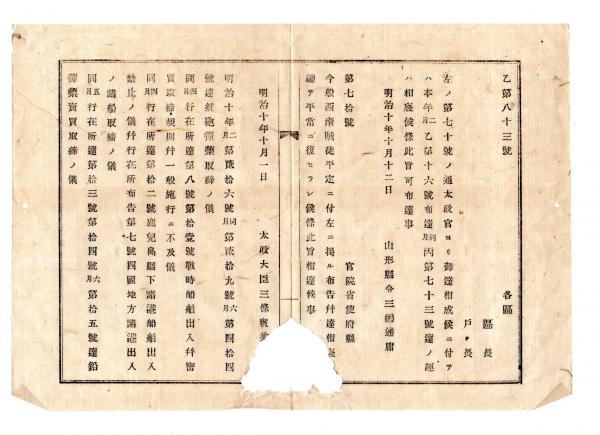 乙第八十三號
各區
區長
戸長
左ノ第七十號ノ通太政官ヨリ御達相成候ニ付テ
ハ本年二月乙第十六號布達同月丙第七十三號達ノ趣
ハ相廃候條此旨可布達事
明治十年十月十二日
山形縣令三島通庸
第七拾號
官院省使府縣
今般西南賊徒平定ニ付左ニ掲ル布告幷達相廢
總テ平常ニ復セラレ候條此旨相達候事
明治十年十月一日
太政大臣三條實美
明治十年二月第貮拾六號同月第貮拾九號六月第四拾四
號達銃砲彈藥取締ノ儀
同四月行在所達第八號第拾壹號戰時船舶出入幷密
買取締規則幷一般施行ニ不及儀
同四月行在所達第拾二號鹿兒島縣下諸港船舶出入
禁止ノ儀幷行在所布告第七號四國地方諸港出入
ノ諸船取締ノ儀
同五月行在所達第拾三號第拾四號六月第拾五號達鉛
彈藥賣買取締ノ儀